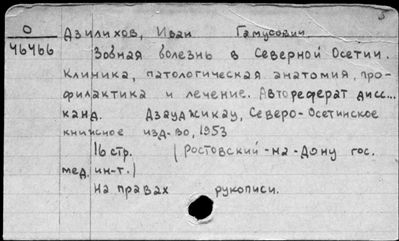 О
46466
Дзилихов, Иван Гамусович.
Зобная болезнь в Северной Осетии.
Клиника, патологическая анатомия, про-
филактика и лечение. Автореферат дисс...
канд. Дзауджикау, Северо-Осетинское
книжное изд-во, 1953
16 стр. (Ростовский-на-Дону гос.
мед. ин-т.)
На правах рукописи.